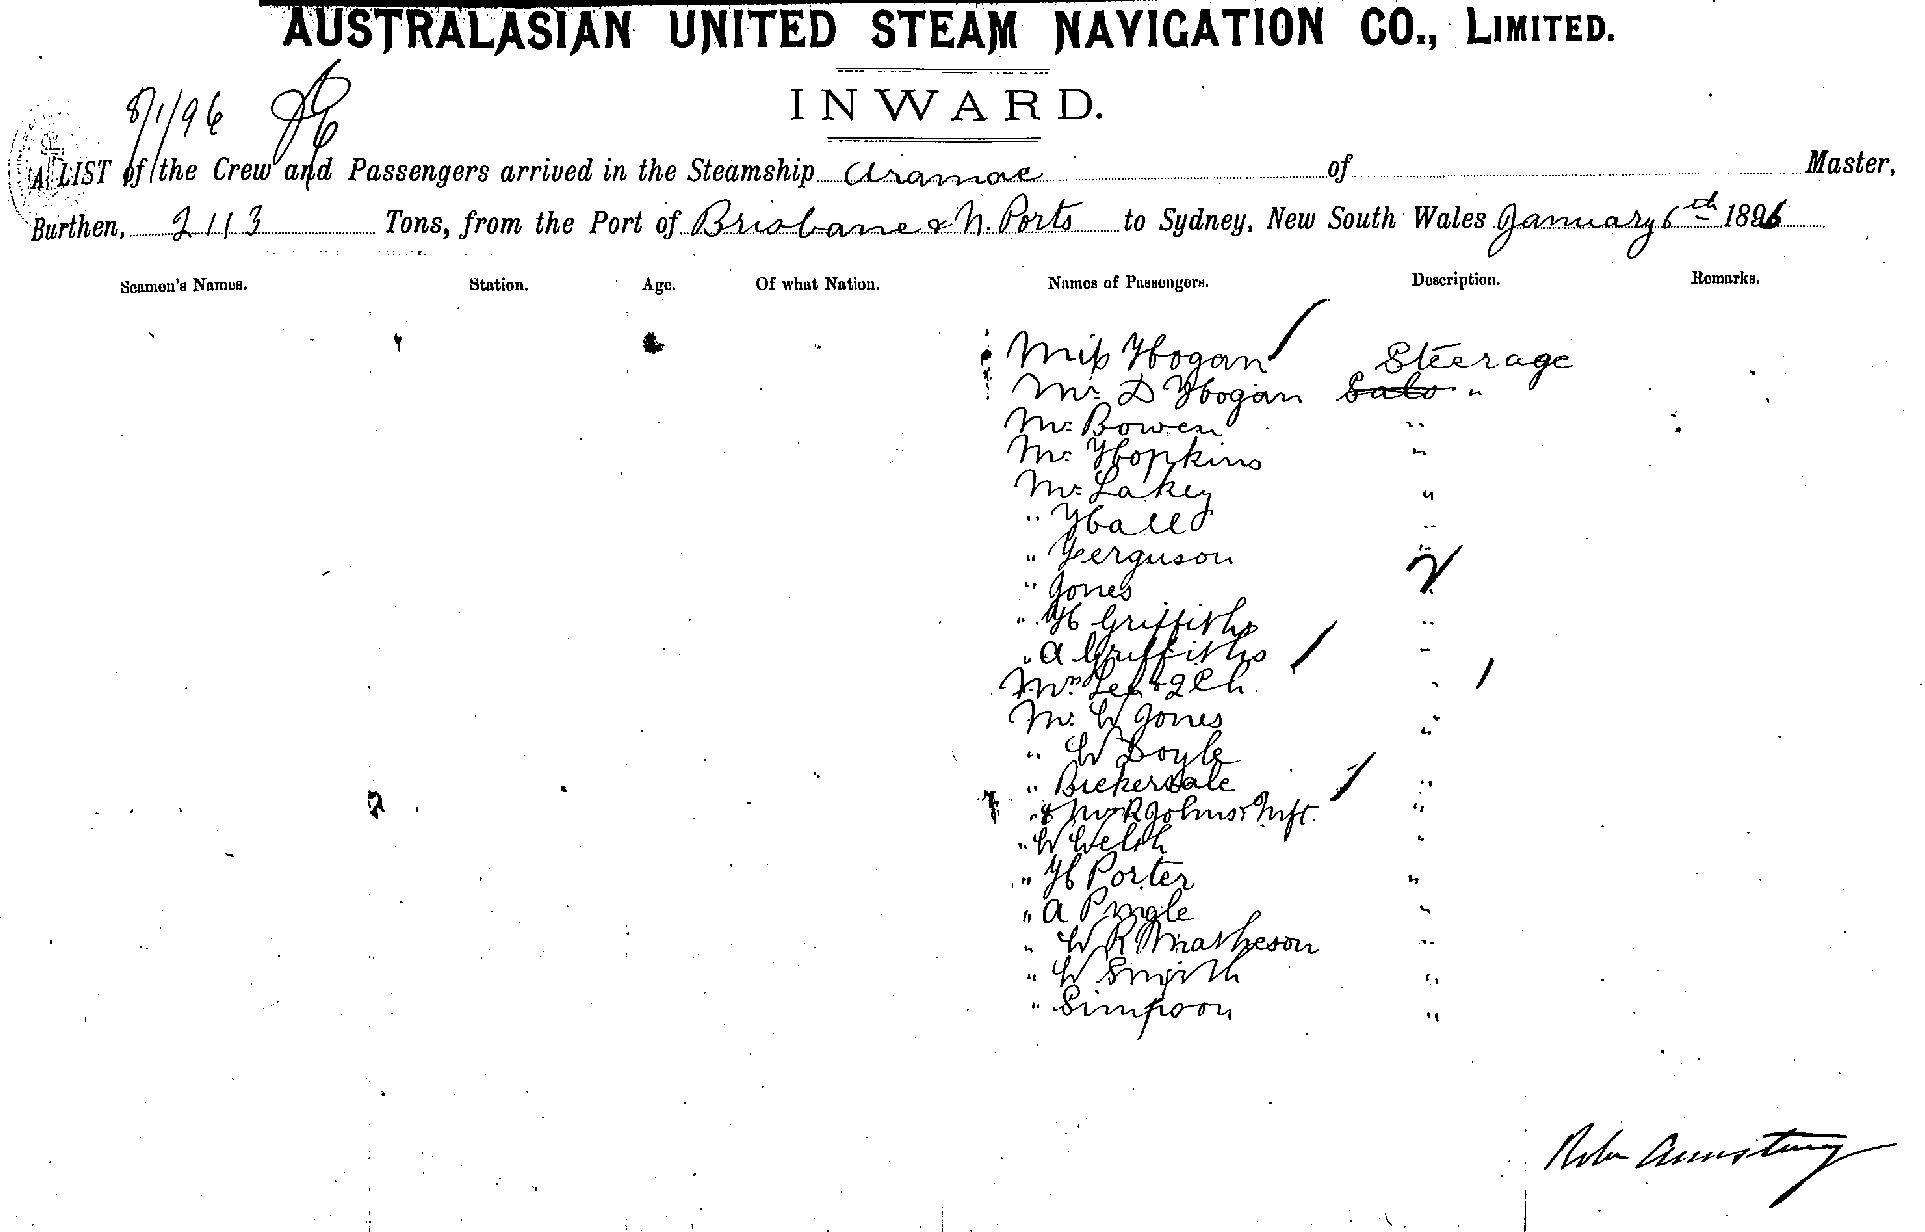 AUSTRALASIAN UNITED STEAM NAVIGATION CO., LIMITED.
INWARD.
8/1/96
A LIST of the Crew and Passengers arrived in the Steamship Aramac of Master,
Burthen, 2113 Tons, from the Port of Brisbane & N. Ports to Sydney, New South Wales January 6th 1896
Seamen's Names. Station. Age. Of what Nation. Names of Passengers. Description. Remarks.
Miss Hogan Steerage
Mr. D Hogan Salo "
Mr. Bowen "
Mr. Hopkins "
Mr. Lakey "
" Hall "
" Ferguson "
" Jones "
" H Griffiths "
" A Griffiths "
Mrs Lee & 2 Ch "
Mr. W Jones "
" W Doyle "
" Bickerdale "
" & Mrs R Johns & Inft. "
" W Welsh "
" H Porter "
" A Pringle "
" W R Matheson "
" W Smyith "
" Simpson "
Armstrong